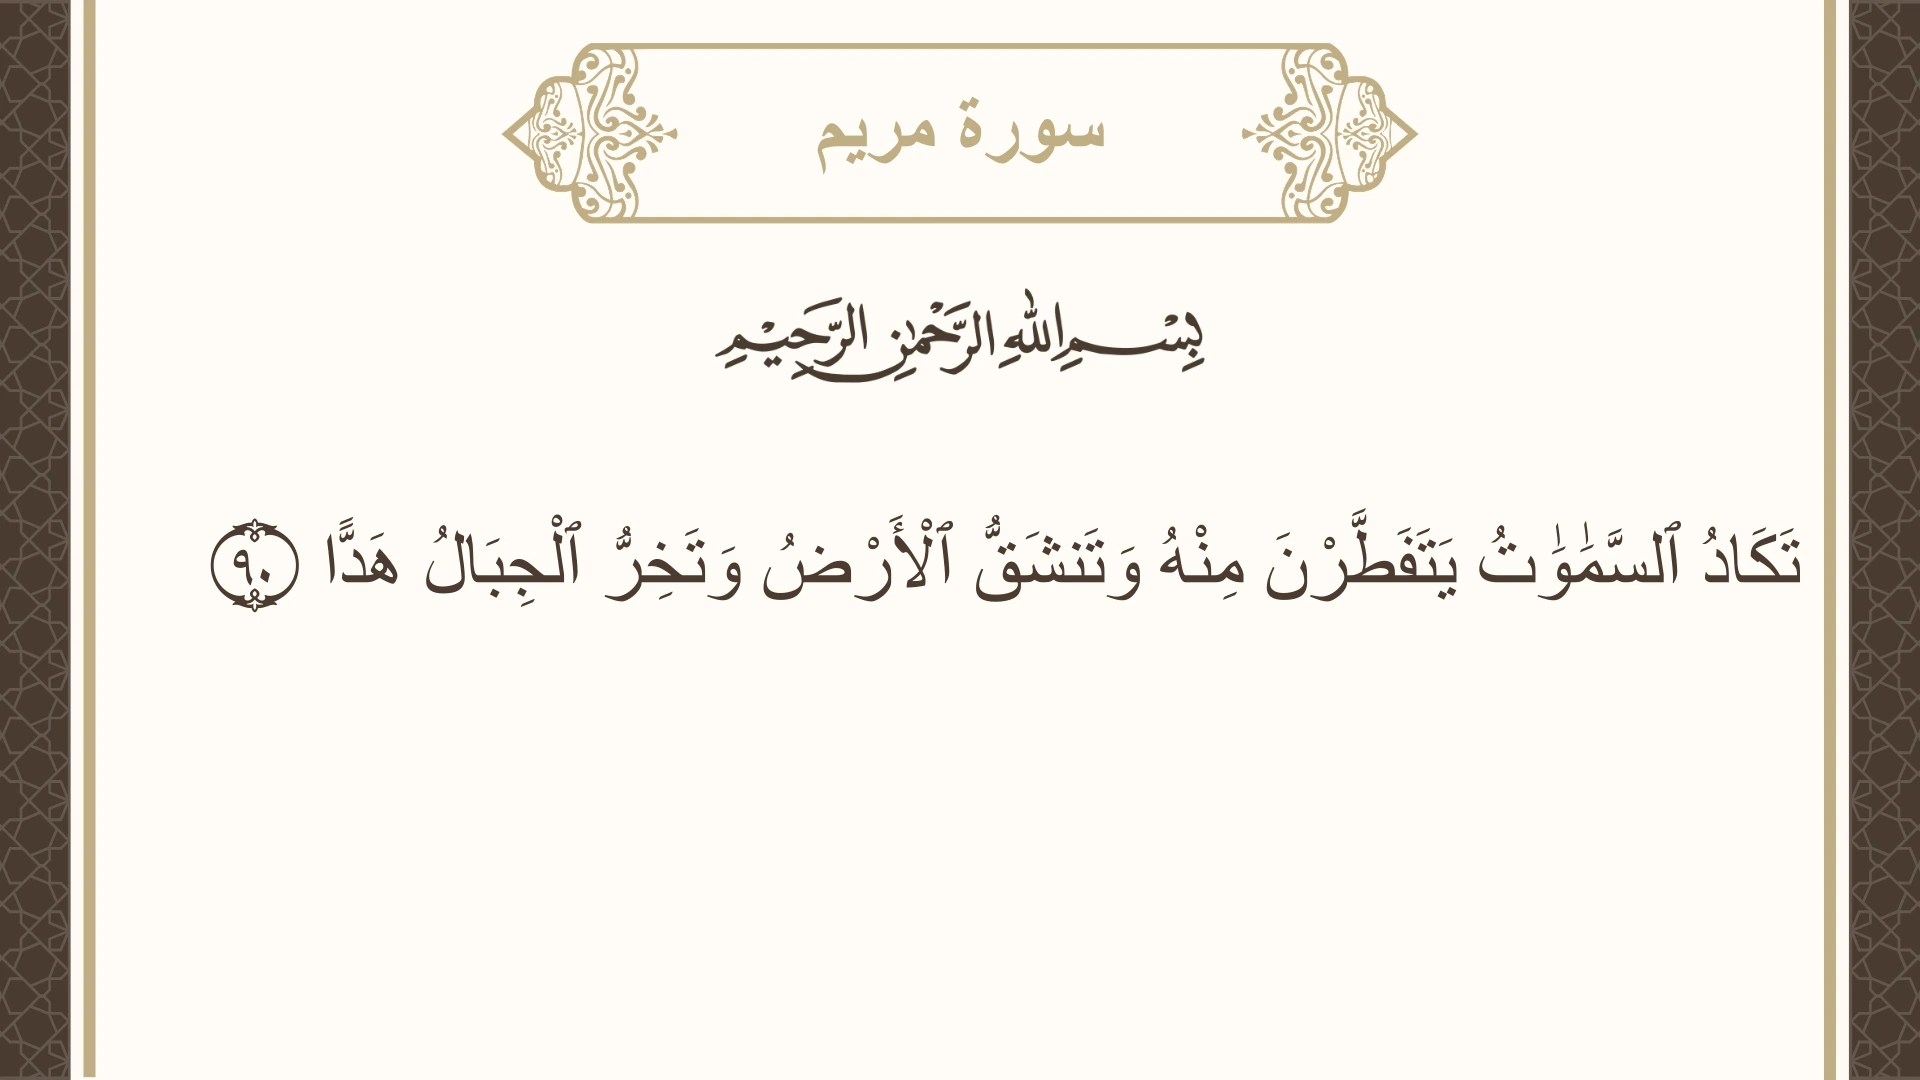 سورة مريم
بِسْمِ اللهِ الرَّحْمٰنِ الرَّحِيْمِ
تَكَادُ ٱلسَّمَٰوَٰتُ يَتَفَطَّرْنَ مِنْهُ وَتَنشَقُّ ٱلْأَرْضُ وَتَخِرُّ ٱلْجِبَالُ هَدًّا ۝٩٠